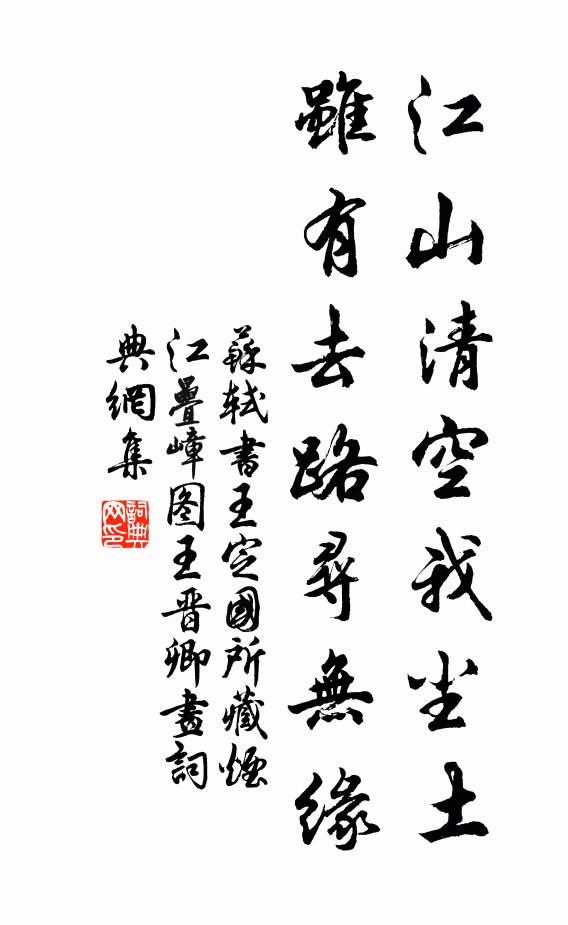 江山清空我尘土
雖有去路尋無緣
蘇軾書王定國所藏煙
江疊嶂图王晋卿畫詞
典網集
詞典网印